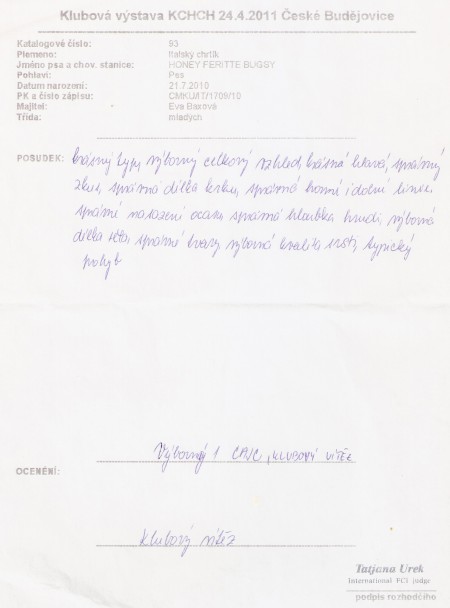 Klubová výstava KCHCH 24.4.2011 České Budějovice
Katalogové číslo: 93
Plemeno: Italský chrtík
Jméno psa a chov. stanice: HONEY FERITTE BUGSY
Pohlaví: Pes
Datum narození: 21.7.2010
PK a číslo zápisu: CMKU/IT/1709/10
Majitel: Eva Baxová
Třída: mladých
POSUDEK: krásný typ, výborný celkový vzhled, krásná hlava, správný
skus, správná délka krku, správná horní i dolní linie,
správné nasazení ocasu, správná hloubka hrudi, výborná
délka těla, správné tvary, výborná kvalita srsti, typický
pohyb
Výborný 1 CAJC, KLUBOVÝ VÍTĚZ
OCENĚNÍ:
Klubový vítěz
Tatjana Urek
International FCI judge
podpis rozhodčího